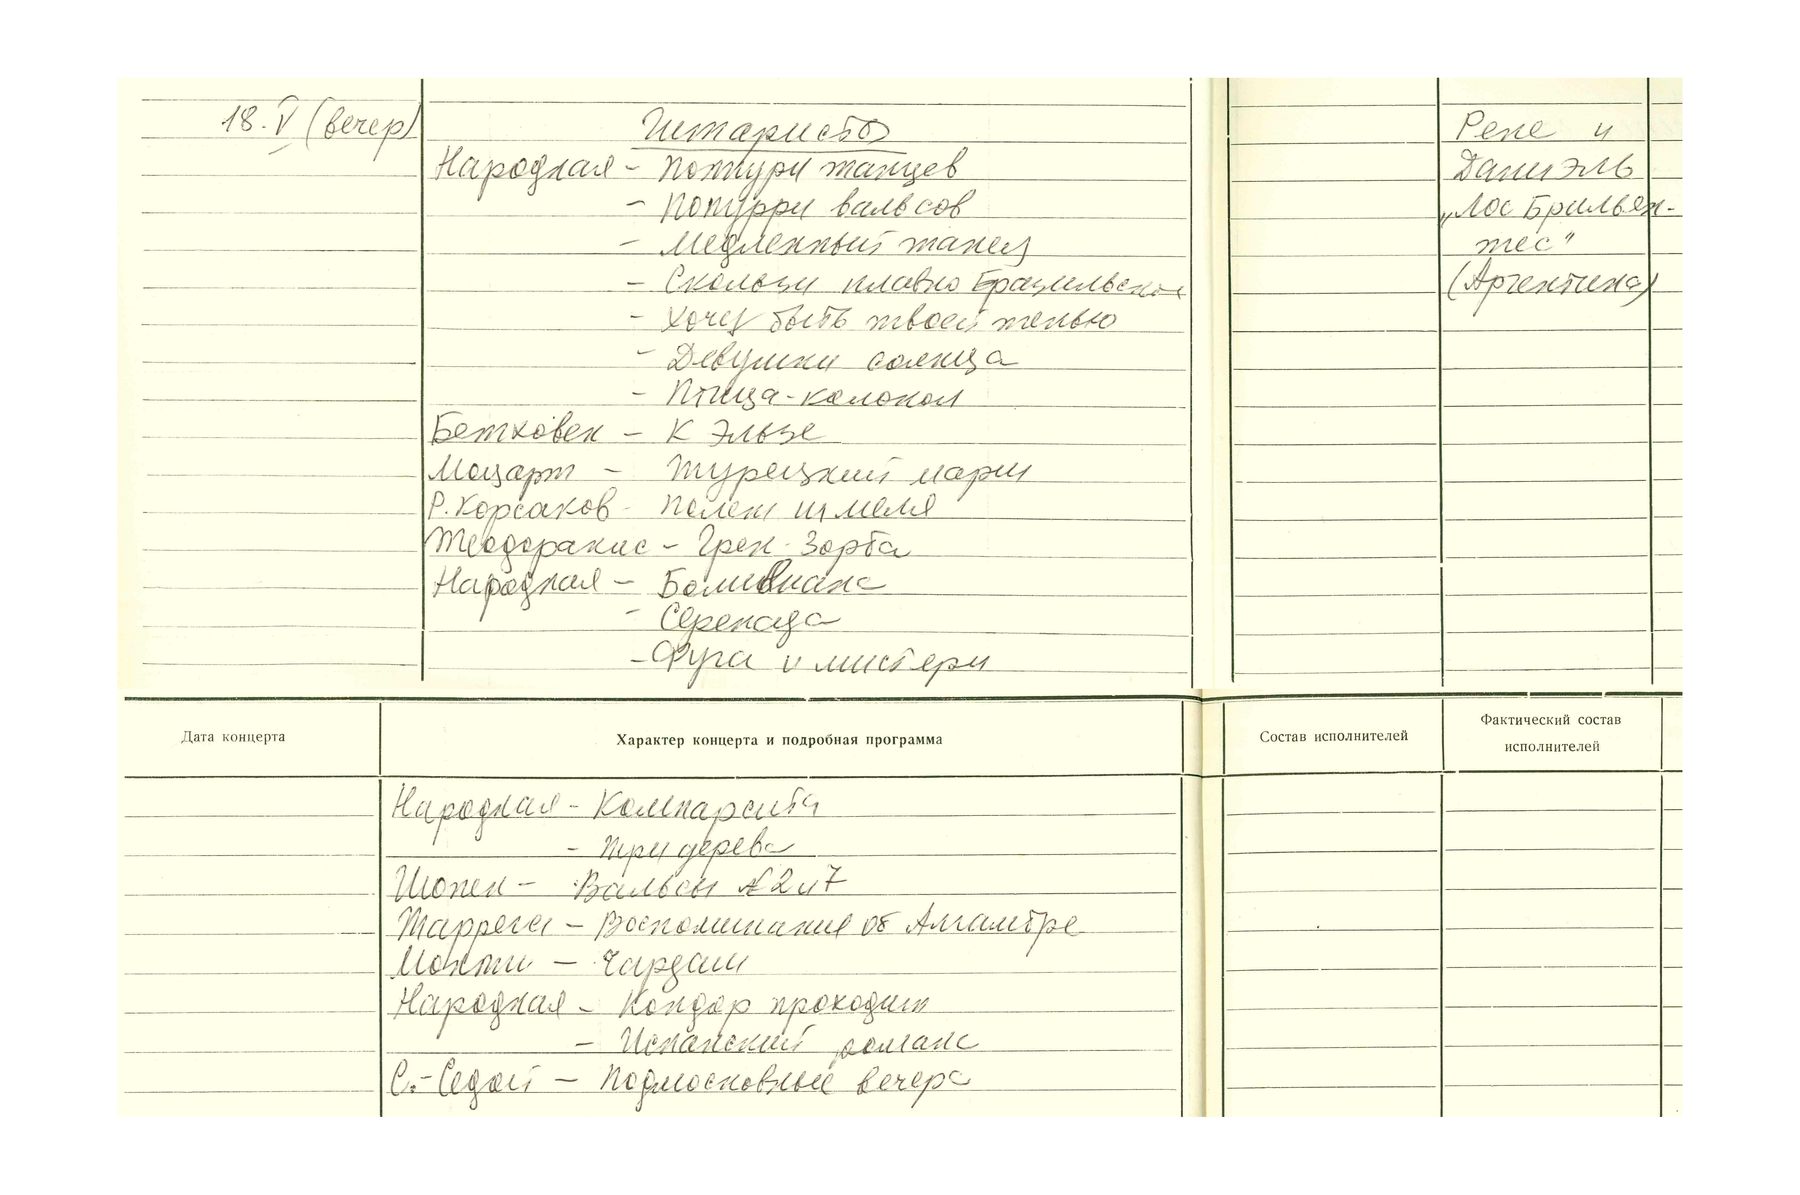 18.V (вечер)
Гитаристы
Рене и
Народная - Поппури танцев
Даниэль
- Попурри вальсов
„Лос Брильян-
- Медленный танец
тес"
- Скользи плавно Бразильское
(Аргентина)
- Хочу быть твоей тенью
- Девушки солнца
- Птица-колокол
Бетховен - К Эльзе
Моцарт - Турецкий марш
Р. Корсаков - Полет шмеля
Теодоракис - Грек Зорба
Народная - Боливиана
- Серенада
- Фуга и мистери
Дата концерта
Характер концерта и подробная программа
Состав исполнителей
Фактический состав
исполнителей
Народная - Компарсита
- Три дерева
Шопен - Вальсы №2 и 7
Таррега - Воспоминание об Алгамбре
Монти - Чардаш
Народная - Кондор проходит
- Испанский романс
С.-Седой - Подмосковные вечера